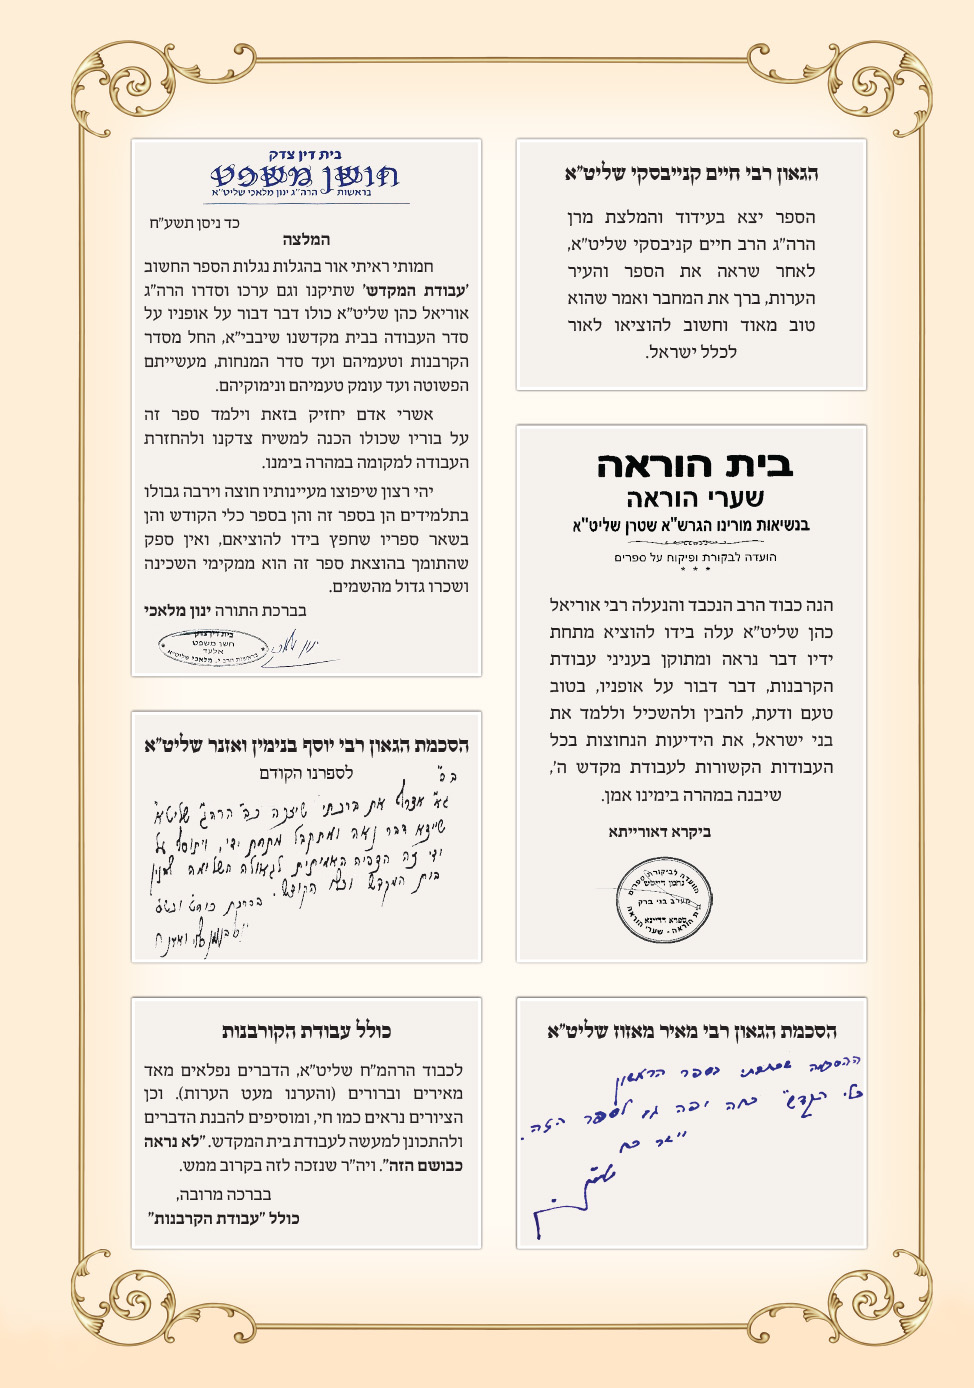 הגאון רבי חיים קנייבסקי שליט"א
הספר יצא בעידוד והמלצת מרן
הרה"ג הרב חיים קניבסקי שליט"א,
לאחר שראה את הספר והעיר
הערות, ברך את המחבר ואמר שהוא
טוב מאוד וחשוב להוציאו לאור
לכלל ישראל.
בית הוראה
שערי הוראה
בנשיאות מורינו הגרש"א שטרן שליט"א
הועדה לבקורת ופיקוח על ספרים
* * *
הנה כבוד הרב הנכבד והנעלה רבי אוריאל
כהן שליט"א עלה בידו להוציא מתחת
ידיו דבר נראה ומתוקן בעניני עבודת
הקרבנות, דבר דבור על אופניו, בטוב
טעם ודעת, להבין ולהשכיל וללמד את
בני ישראל, את הידיעות הנחוצות בכל
העבודות הקשורות לעבודת מקדש ה',
שיבנה במהרה בימינו אמן.
ביקרא דאורייתא
הוועדה לביקורת ספרים
נחמן
מערב בני ברק
ספרא דדיינא
בית הוראה - שערי הוראה
הסכמת הגאון רבי מאיר מאזוז שליט"א
ההסכמה שכתבתי בספר הראשון
כלי הקדש" כחה יפה גם לספר הזה.
בית דין צדק
חושן משפט
בראשות הרה"ג ינון מלאכי שליט"א
כד ניסן תשע"ח
המלצה
חמותי ראיתי אור בהגלות נגלות הספר החשוב
'עבודת המקדש' שתיקנו וגם ערכו וסדרו הרה"ג
אוריאל כהן שליט"א כולו דבר דבור על אופניו על
סדר העבודה בבית מקדשנו שיבבי"א, החל מסדר
הקרבנות וטעמיהם ועד סדר המנחות, מעשייתם
הפשוטה ועד עומק טעמיהם ונימוקיהם.
אשרי אדם יחזיק בזאת וילמד ספר זה
על בוריו שכולו הכנה למשיח צדקנו ולהחזרת
העבודה למקומה במהרה בימנו.
יהי רצון שיפוצו מעיינותיו חוצה וירבה גבולו
בתלמידים הן בספר זה והן בספר כלי הקודש והן
בשאר ספריו שחפץ בידו להוציאם, ואין ספק
שהתומך בהוצאת ספר זה הוא ממקימי השכינה
ושכרו גדול מהשמים.
בברכת התורה ינון מלאכי
בית דין צדק
חשן משפט
אלעד
בראשות הרב י. מלאכי שליט"א
הסכמת הגאון רבי יוסף בנימין ואזנר שליט"א
לספרנו הקודם
בס"ד
את ברכתי שיזכה כב' הרה"ג שליט"א
שיוצא דבר נאה ומתקבל מתחת ידי, ויתוסף על
ידי זה הצפיה האמיתית לגאולה השלימה לבנין
בית המקדש וכלי הקודש. בברכת
כולל עבודת הקורבנות
לכבוד הרהמ"ח שליט"א, הדברים נפלאים מאד
מאירים וברורים (והערנו מעט הערות). וכן
הציורים נראים כמו חי, ומוסיפים להבנת הדברים
ולהתכונן למעשה לעבודת בית המקדש. "לא נראה
כבושם הזה". ויה"ר שנזכה לזה בקרוב ממש.
בברכה מרובה,
כולל "עבודת הקרבנות"